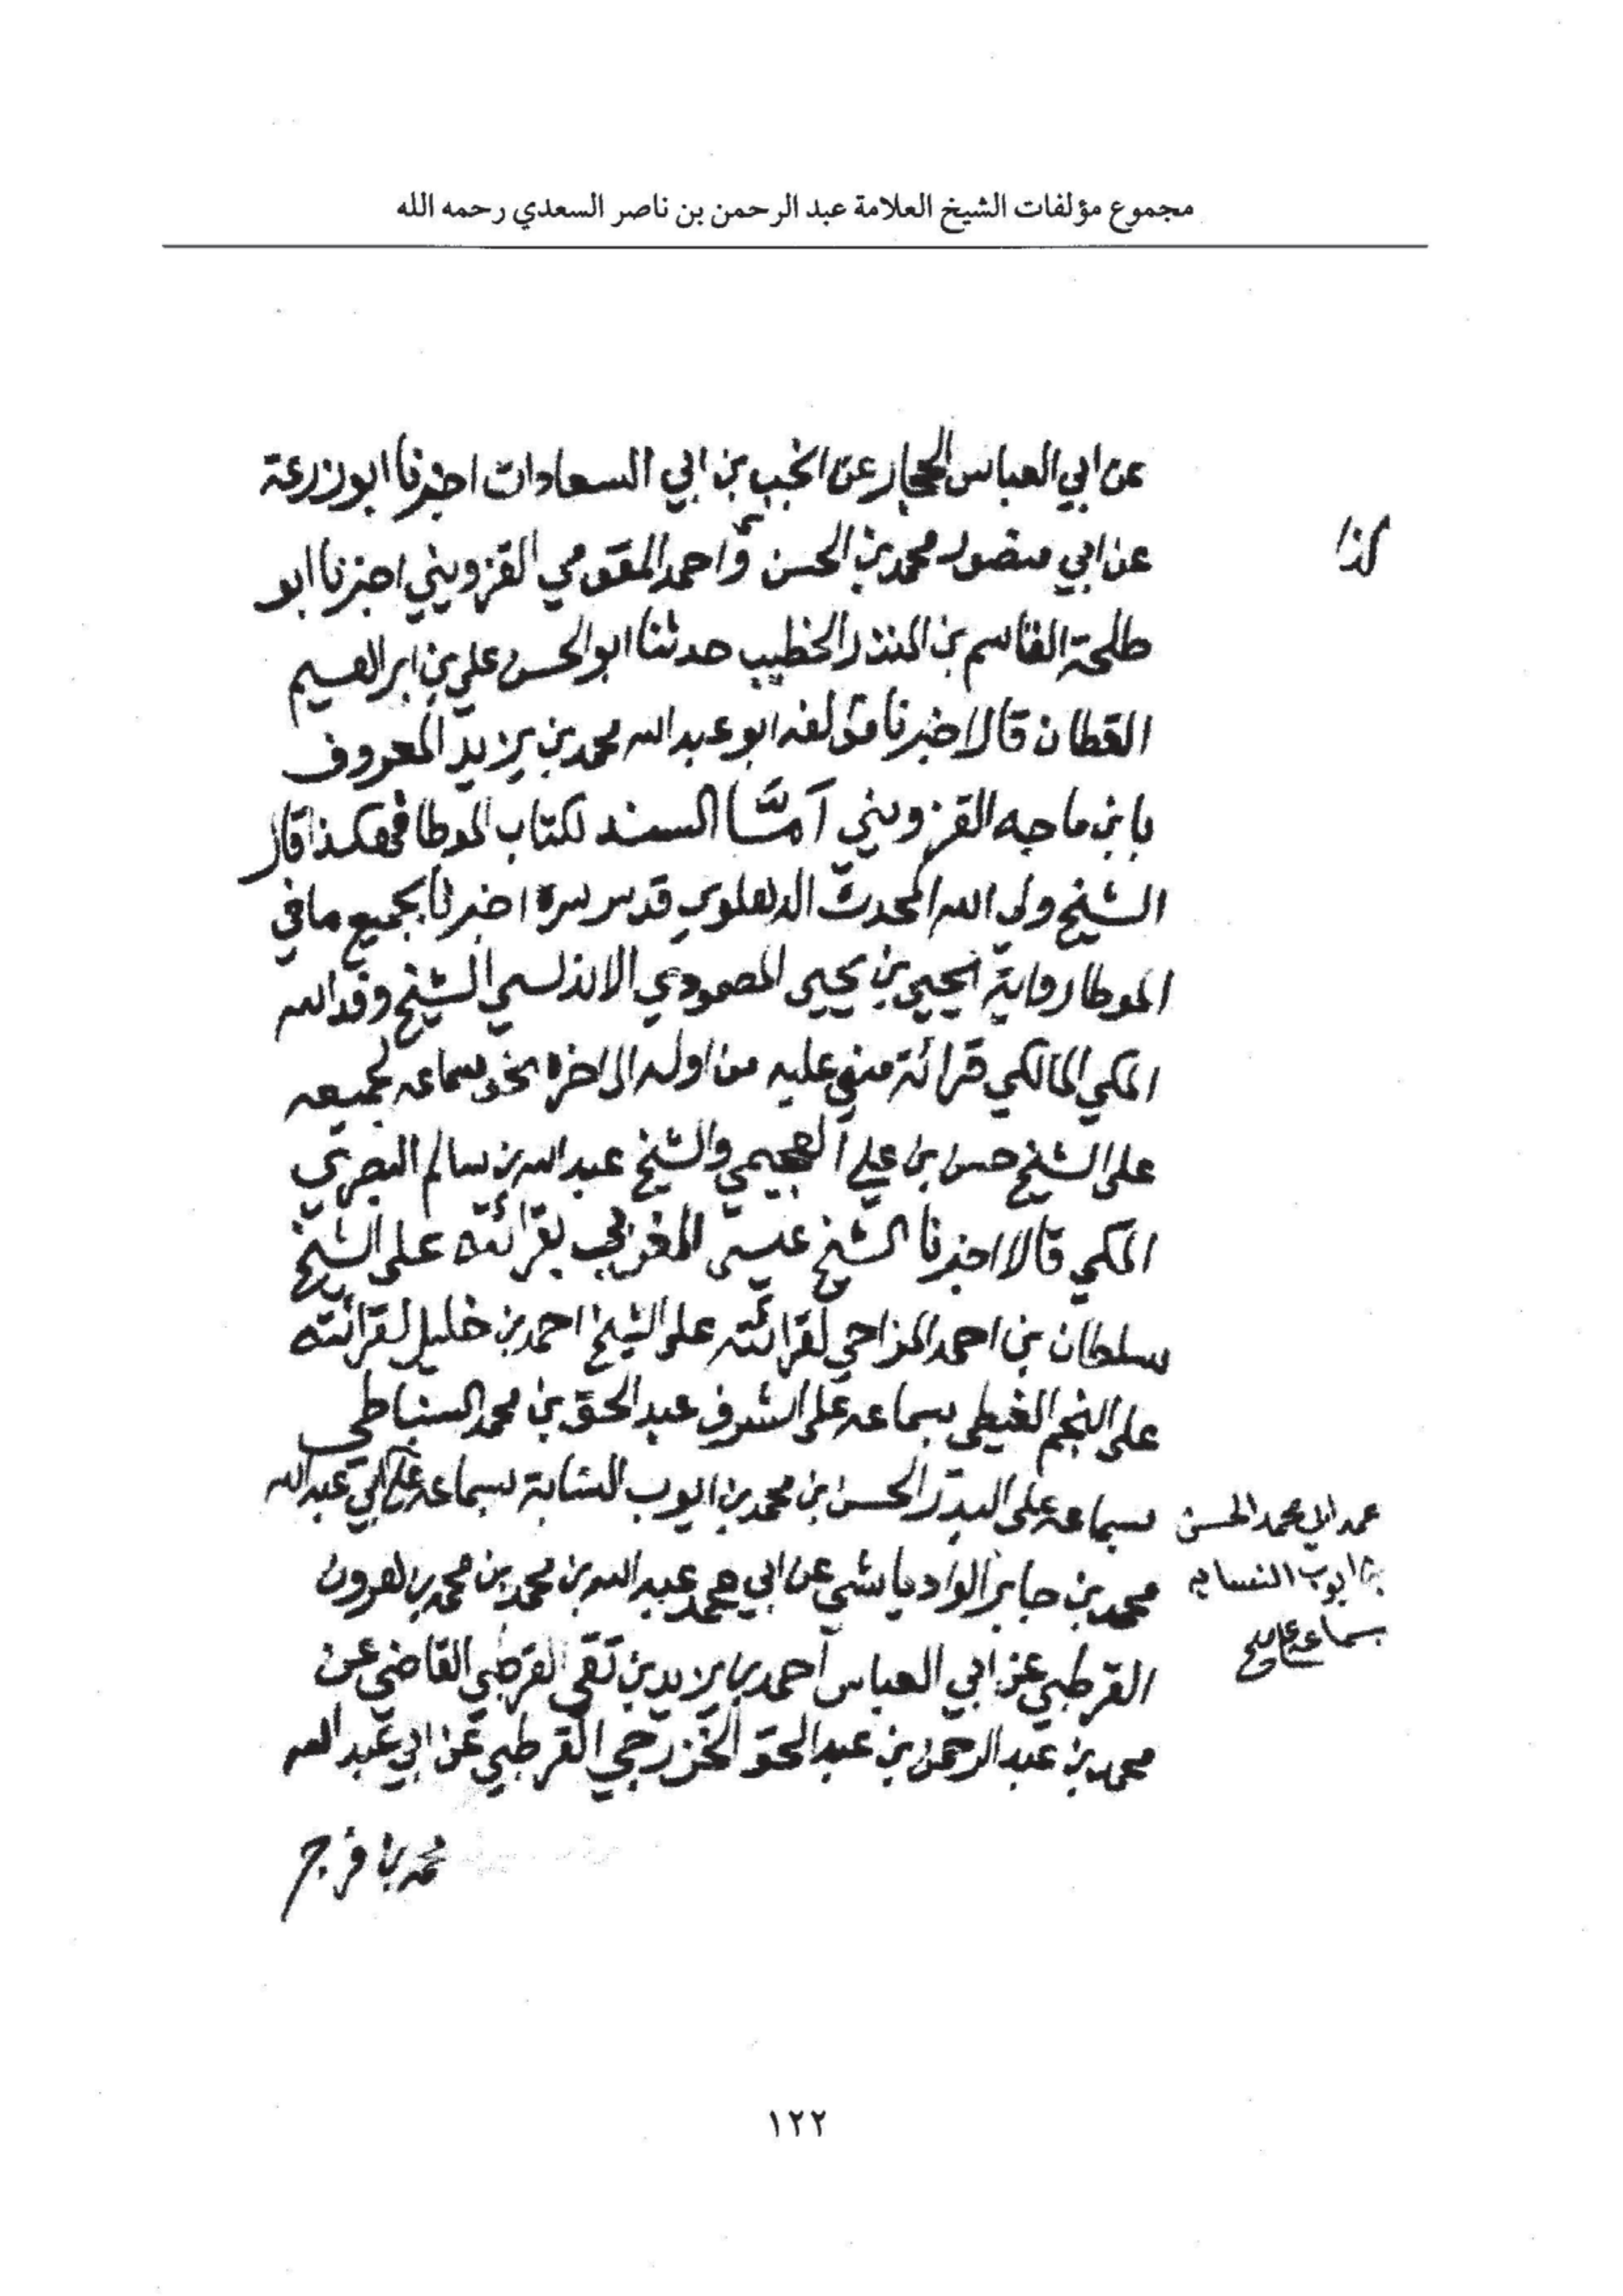 مجموع مؤلفات الشيخ العلامة عبد الرحمن بن ناصر السعدي رحمه الله
عن ابي العباس الحجار عن انجب بن ابي السعادات اخبرنا ابوزرعة
عن ابي منصور محمد بن الحسن واحمد المقومي القزويني اخبرنا ابو
كذا
طلحة القاسم بن المنذر الخطيب حدثنا ابوالحسن علي بن ابراهيم
القطان قال اخبرنا مؤلفه ابو عبد الله محمد بن يزيد المعروف
بابن ماجه القزويني أمَّا السند لكتاب الموطا فهكذا قال
الشيخ ولي الله المحدث الدهلوي قدس سره اخبرنا بجميع ما في
الموطا رواية يحيى بن يحيى المصمودي الاندلسي الشيخ وفد الله
المكي المالكي قرائة مني عليه من اوله الى اخره بحق سماعه لجميعه
على الشيخ حسن بن علي العجيمي والشيخ عبد الله بن سالم البصري
المكي قالا اخبرنا الشيخ عيسى المغربي بقرائته على الشيخ
سلطان بن احمد المزاحي بقرائته على الشيخ احمد بن خليل بقرائته
على النجم الغيطي بسماعه على الشرف عبد الحق بن محمد السنباطي
بسماعه على البدر الحسن بن محمد بن ايوب النسابة بسماعه على ابي عبد الله
عمه ابي محمد الحسن
بن ايوب النسابه
بسماعه على
محمد بن جابر الوادياشي عن ابي محمد عبد الله بن محمد بن محمد بن هرون
القرطبي عن ابي العباس احمد بن يزيد بن تقي القرطبي القاضي عن
محمد بن عبد الرحمن بن عبد الحق الخزرجي القرطبي عن ابي عبد الله
محمد بن فرج
١٢٢